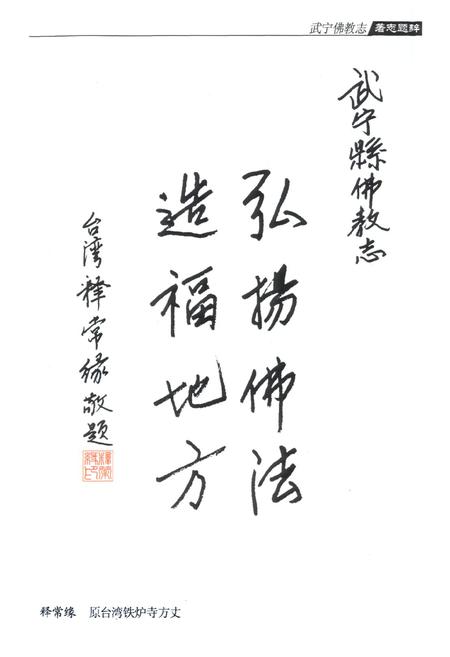 武宁佛教志 著志题辞
武宁縣佛教志
弘揚佛法
造福地方
台湾释常缘敬题
释常缘 原台湾铁炉寺方丈